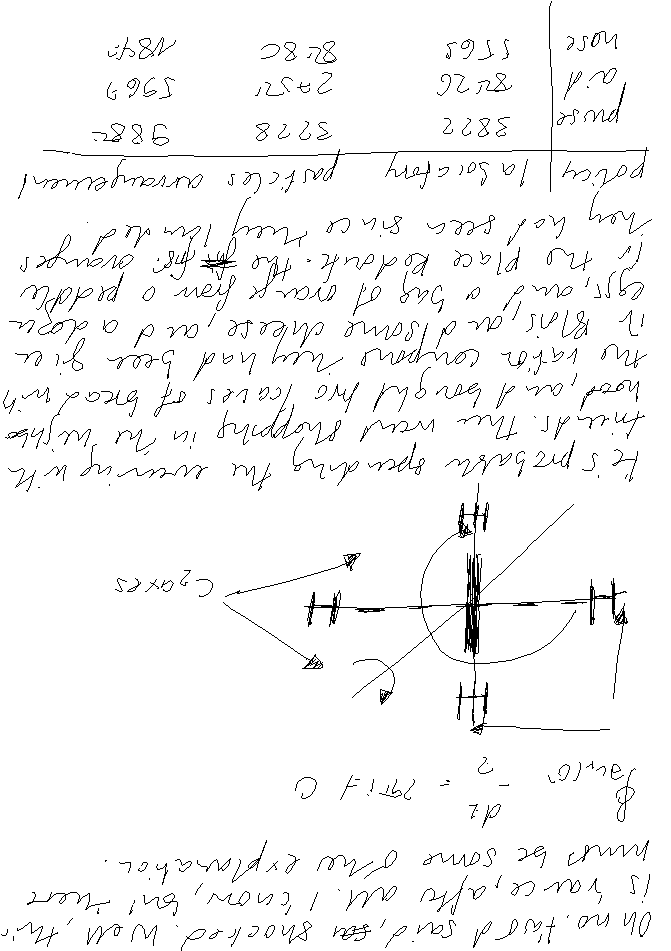 Oh no. said, shocked. Well, this
is rance, after all. I know, but there
must be some other explanation.
dz
z = 2πi ≠ 0
H
H H
H
C₂ axes
He's probable spending the evening with
friends. then went shopping in the neighbo
hood, and bought two loaves of bread with
the ration they had been give
in Blois, and some cheese, and a dozen
eggs, and a bag of orange from a peddle
in the place Redoute. the oranges
they had seen since they landed.
policy laboratory particles arrangement
3822 3228
aid 5967
nose 5565